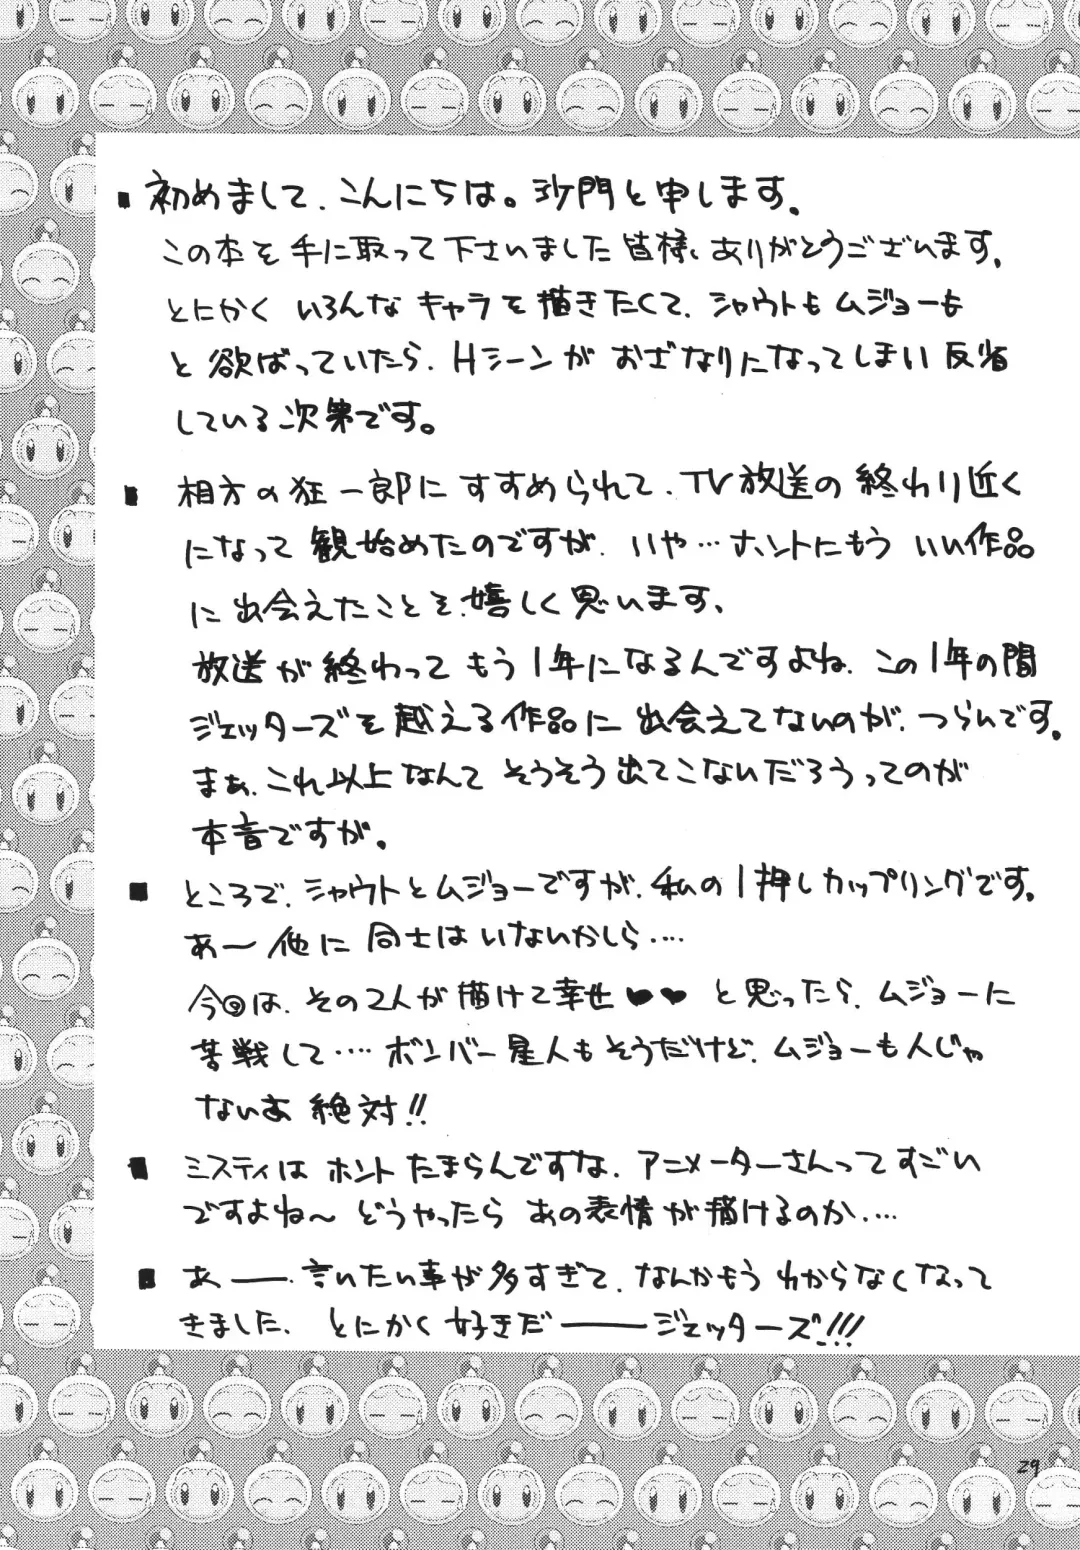 ■ 初めまして、こんにちは。沙門と申します。
この本を手に取って下さいました皆様、ありがとうございます。
とにかく いろんなキャラを描きたくて、シャウトもムジョーも
と欲ばっていたら、Hシーンがおざなりになってしまい反省
している次第です。
■ 相方の狂一郎にすすめられて、TV放送の終わり近く
になって観始めたのですが、いや…ホントにもういい作品
に出会えたことを、嬉しく思います。
放送が終わってもう1年になるんですよね、この1年の間
ジェッターズを越える作品に出会えてないのが、つらいんです。
まぁ、これ以上なんてそうそう出てこないだろうってのが
本音ですが。
■ ところで、シャウトとムジョーですが、私の1押しカップリングです。
あ〜他に同士はいないかしら‥‥
今回は、その2人が描けて幸せ♥♥と思ったら、ムジョーに
苦戦して‥‥ボンバー星人もそうだけど、ムジョーも人じゃ
ないあ 絶対!!
■ ミスティはホントたまらんですな、アニメーターさんってすごい
ですよね〜どうやったらあの表情が描けるのか‥‥
■ あ――言いたい事が多すぎて、なんかもうわからなくなって
きました、とにかく好きだ――ジェッターズ!!!
29